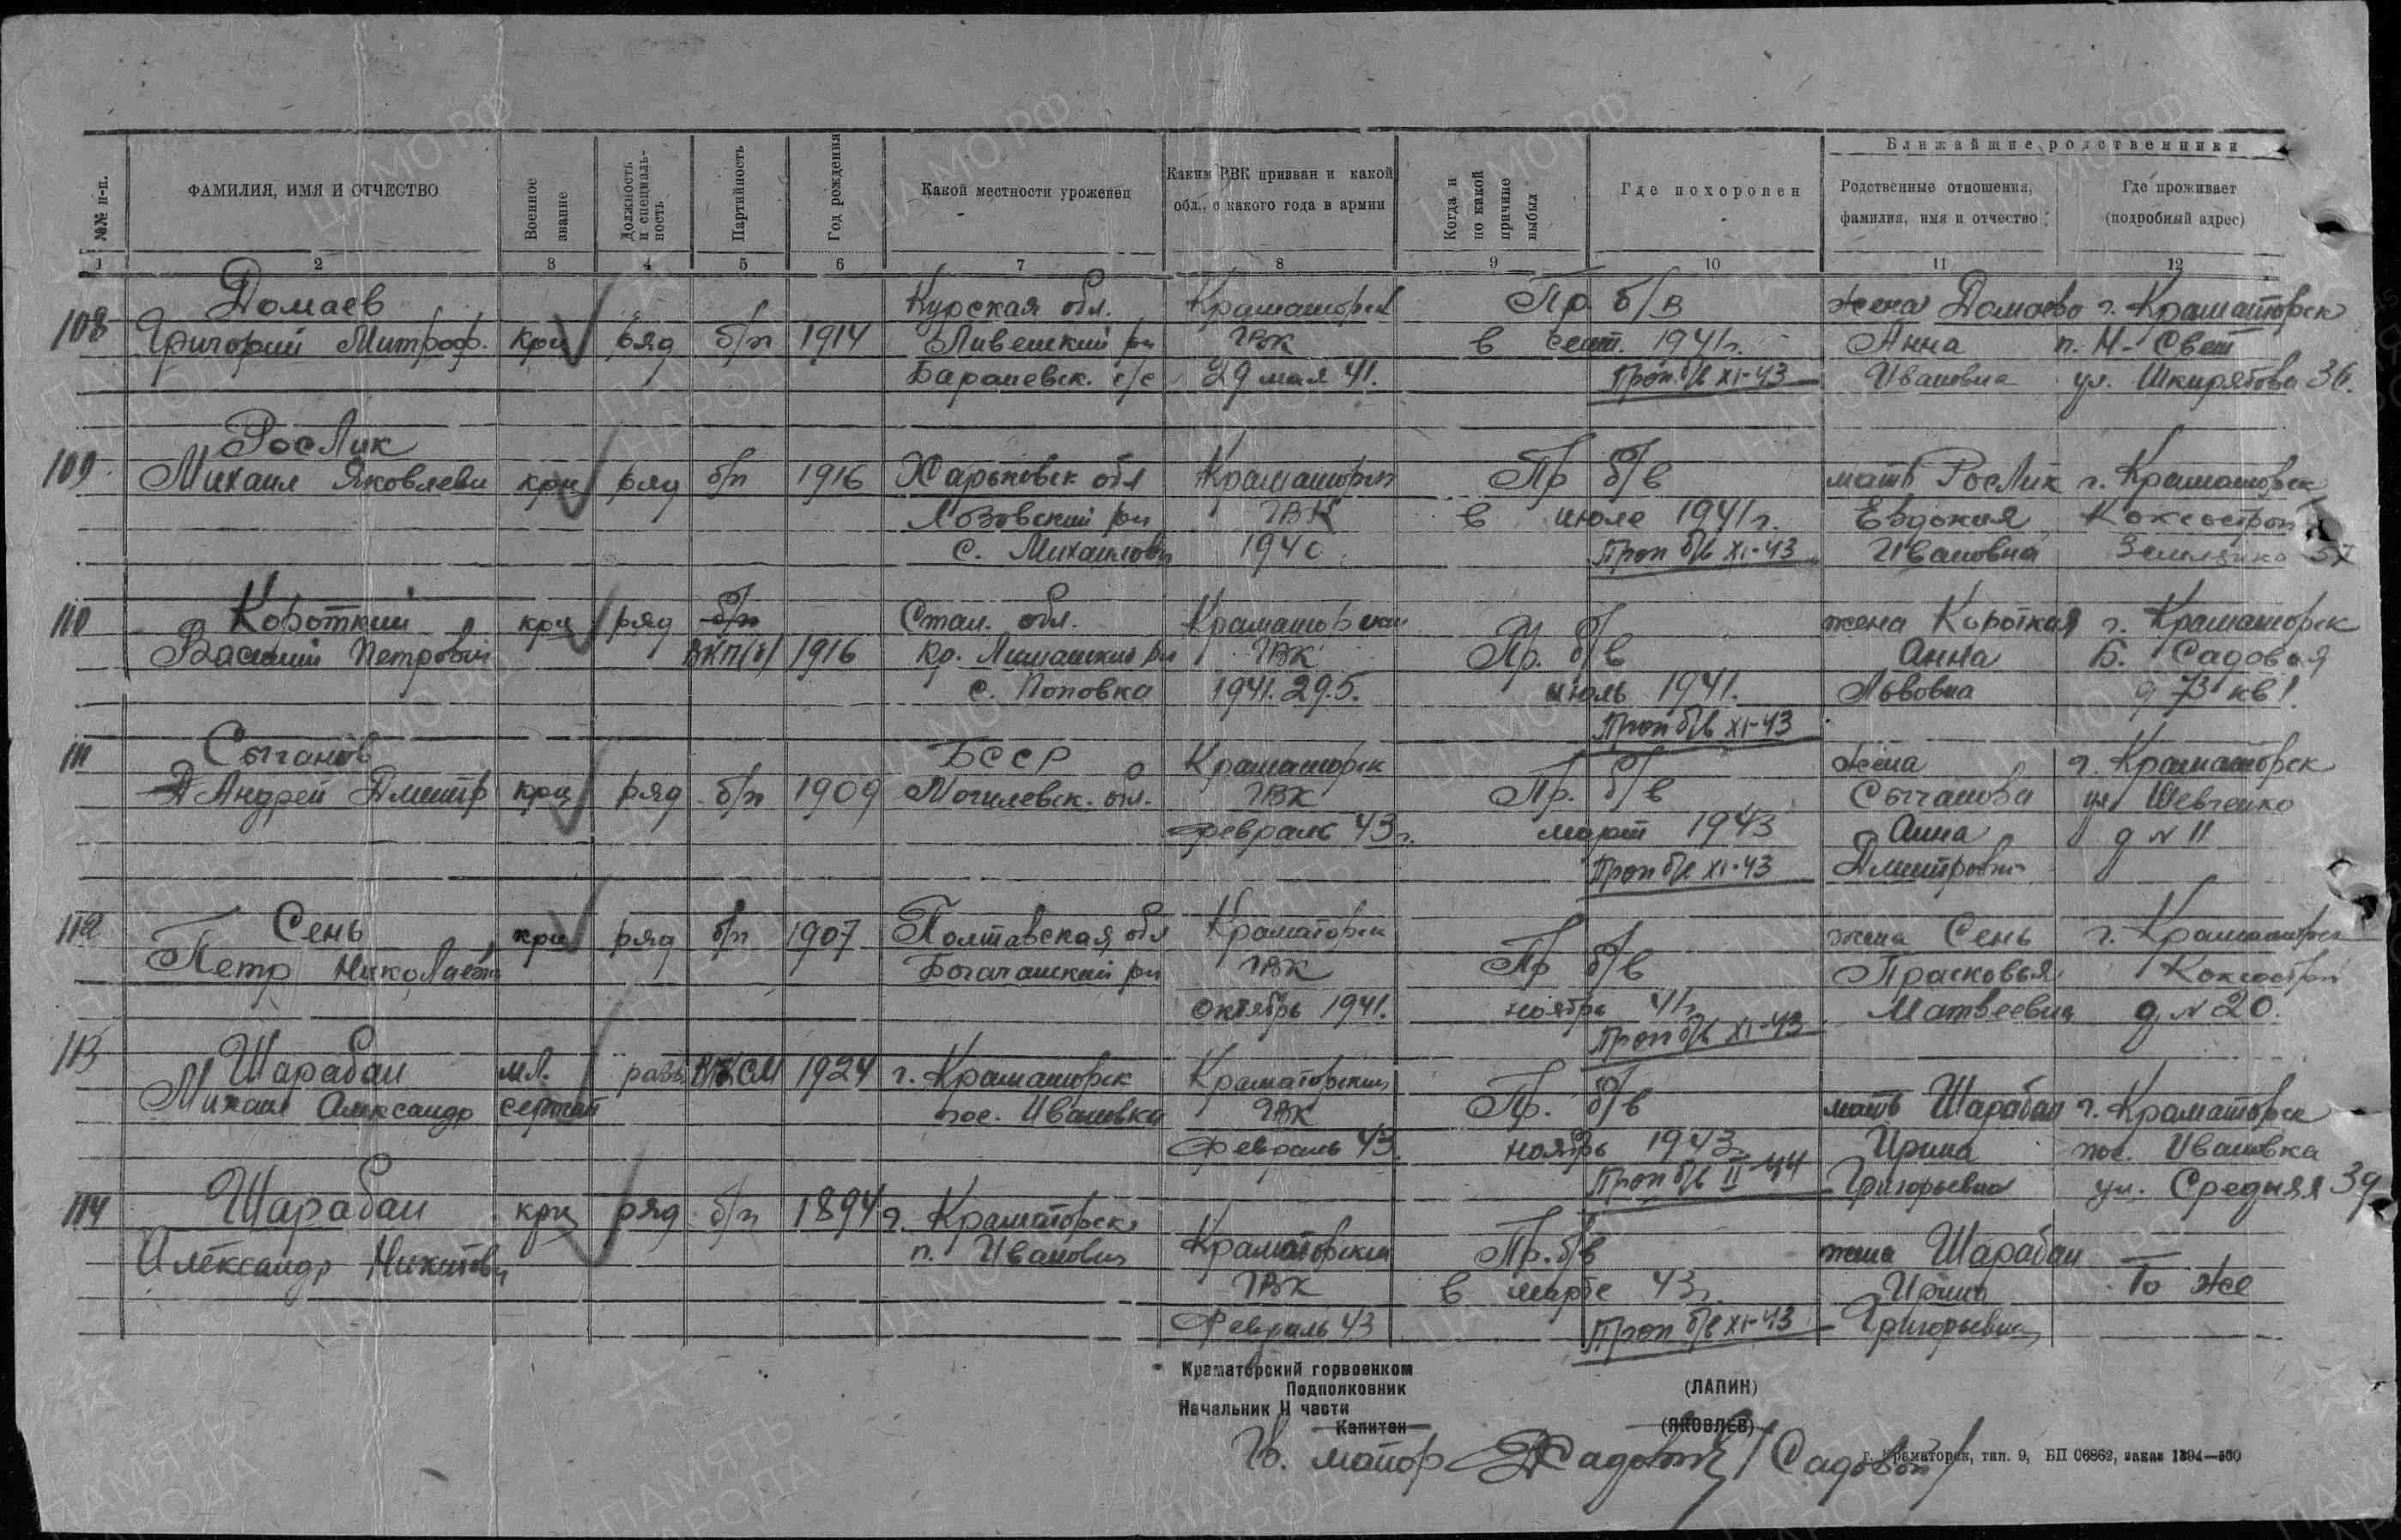 №№ п-п.
ФАМИЛИЯ, ИМЯ И ОТЧЕСТВО
Военное звание
Должность и специаль-ность
Партийность
Год рождения
Какой местности уроженец
Каким РВК призван и какой обл., с какого года в армии
Когда и по какой причине выбыл
Где похоронен
Ближайшие родственники
Родственные отношения, фамилия, имя и отчество
Где проживает (подробный адрес)
1 2 3 4 5 6 7 8 9 10 11 12
Домаев Курская обл. Краматорск Пр. б/в жена Домаева г. Краматорск
108 Григорий Митроф. кр-ц ряд б/п 1914 Ливенский р-н ГВК в сент. 1941г. Анна п. Н-Свет
с/с 29 мая 41. Проп. б/в XI-43 Ивановна ул. Шкирятова 36.
Рослик
109 Михаил Яковлеви кр-ц ряд б/п 1916 Харьковск обл Краматорск Пр б/в мать Рослик г. Краматорск
Лозовский р-н ГВК в июле 1941г. Евдокия Коксострой
с. Михайловк 1940 Проп б/в XI-43 Ивановна 57
110 Короткий кр-ц ряд б/п Стал. обл. Краматорский жена Короткая г. Краматорск
Василий Петрович ВКП(б) 1916 Кр. Лиманский р-н ГВК Пр. б/в Анна Б. Садовая
с. Поповка 1941.29.5. июль 1941. Львовна д 73 кв 1.
Проп б/в XI-43
111 Сычанов БССР Краматорск Пр. б/в жена г. Краматорск
Андрей Дмитр кр-ц ряд б/п 1909 Могилевск. обл. ГВК Сычанова ул Шевченко
февраль 43г. март 1943 Анна д N 11
Проп б/в XI-43 Дмитровн
112 Сень кр-ц ряд б/п 1907 Полтавская обл Краматорск жена Сень г. Краматорск
Петр Николаев р-н ГВК Пр б/в Прасковья Коксострой
октябрь 1941. ноябрь 41г. Матвеевна д N 20.
Проп б/в XI-43
113 Шарабан мл. разв ВЛКСМ 1924 г. Краматорск Краматорский Пр. б/в
Михаил Александр сержант пос. Ивановка ГВК мать Шарабан г. Краматорск
Февраль 43. ноябрь 1943 Ирина пос. Ивановка
Проп б/в II-44 Григорьевна ул. Средняя 39
114 Шарабан кр-ц ряд б/п 1894 г. Краматорск
Александр Никитови п. Ивановк Краматорский Пр. б/в жена Шарабан
ГВК в марте 43г. Ирина То же
Февраль 43 Проп б/в XI-43 Григорьевна
Краматорский горвоенком
Подполковник (ЛАПИН)
Начальник II части
Капитан (ЯКОВЛЕВ)
Гв. майор Садовый /Садовой/
г. Краматорск, тип. 9, БП 06862, заказ 1394—500
ПАМЯТЬ НАРОДА
ЦАМО.РФ